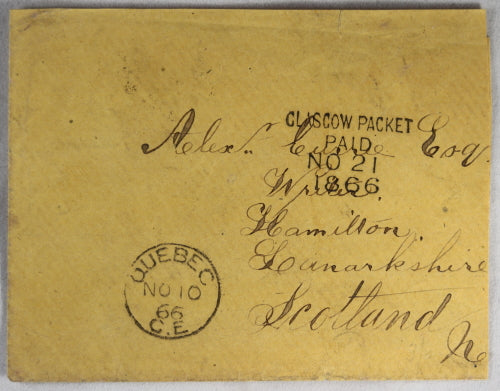 GLASGOW PACKET
PAID
NO 21
1866
Alexr. Esq.
Writer.
Hamilton.
Lanarkshire
Scotland
QUEBEC
NO 10
66
C.E